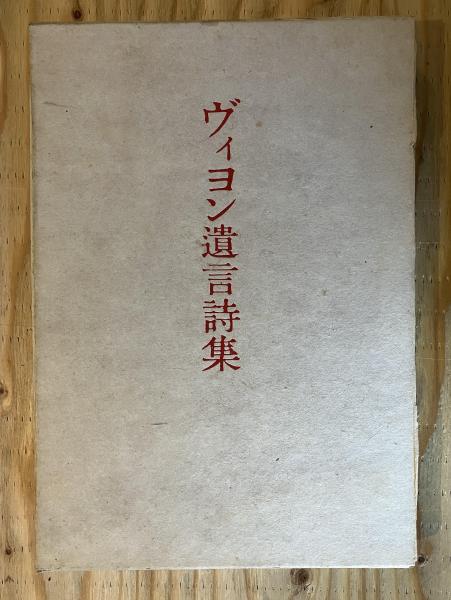 ヴィヨン遺言詩集